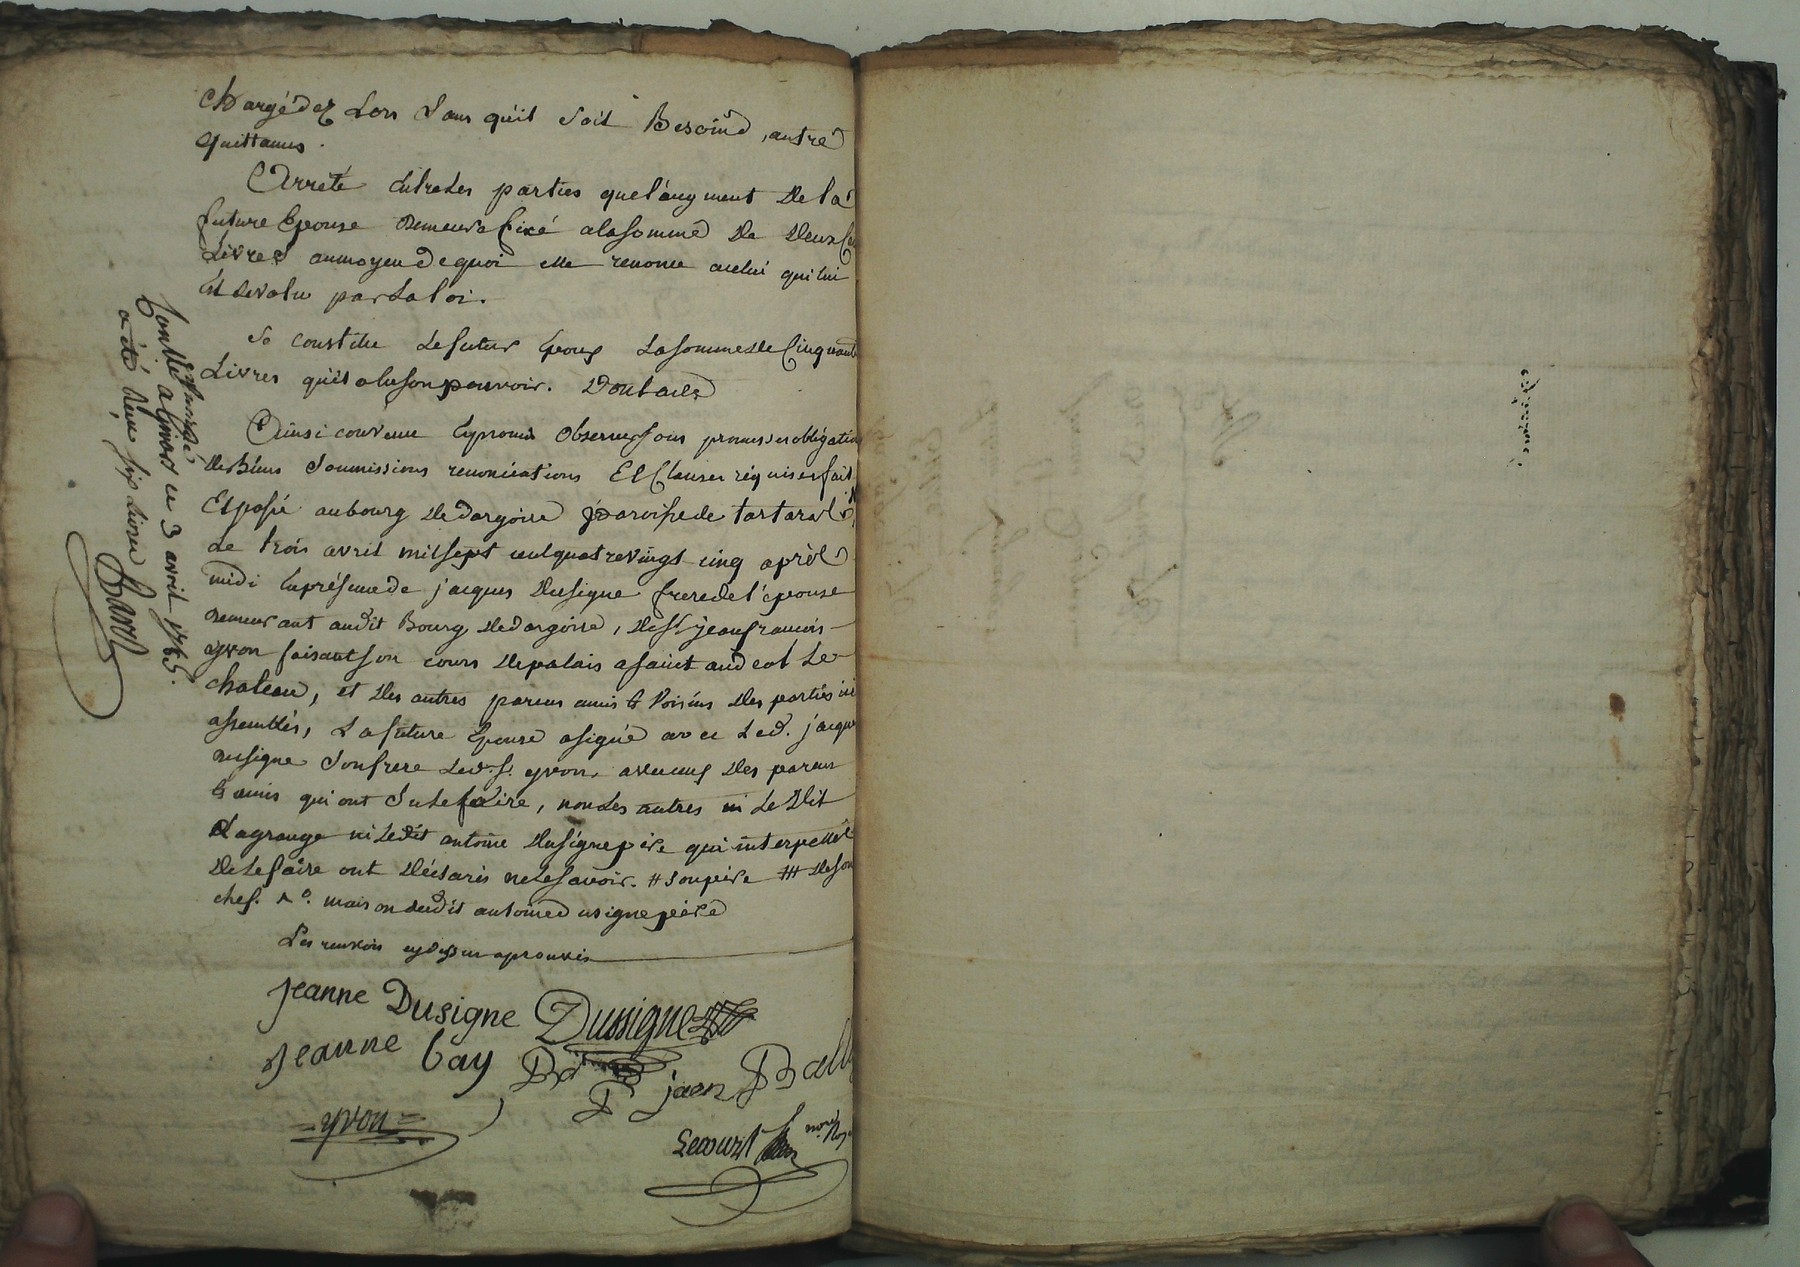 Chargé dez Lors sans quil soit Besoind, autre
quittance.
Arrêté entre Les parties que l'augment De la
future Epouse Demeure fixé a la somme De Deux Cen
Livres aumoyen dequoi elle renonce acelui qui lui
Est devolu par La loi.
Se constitue Le futur Epoux La somme De Cinquante
Livres quil a en son pouvoir. Dont acte
Ainsi convenu Et promis observer sous promesses obligation
De Biens soumissions renonciations Et Clauses réquises fait
Et passé au bourg De dargoire paroisse de tartaras
Le trois avril mil sept cent quatre vingt cinq après
midi En présence de jacques Dusigne frere de l'épouse
Demeurant audit Bourg De dargoire, De Sr. jean francois
yvon faisant son cours De palais a saint andeol Le
chateau, et Des autres parens amis Et Voisins Des parties ici
assemblés, La future Epouse a signé avec Led. jacques
Dusigne son frere Led. Sr. yvon, avec ceux Des parens
Et amis qui ont su Le faire, non Les autres ni Le Dit
Lagrange ni Ledit antoine Dusigne pere qui interpellés
De Le faire ont Déclarés ne Le savoir. # son pere ## De son
chef. maison dudit antoine Dusigne pere
Les renvois cy dessus aprouvés
jeanne Dusigne Dussigne
jeanne bay jaen Ball
yvon
Lecourt nore. Roy.
Controllé a Givors ce 3 avril 1785.
a été reçu six Livres